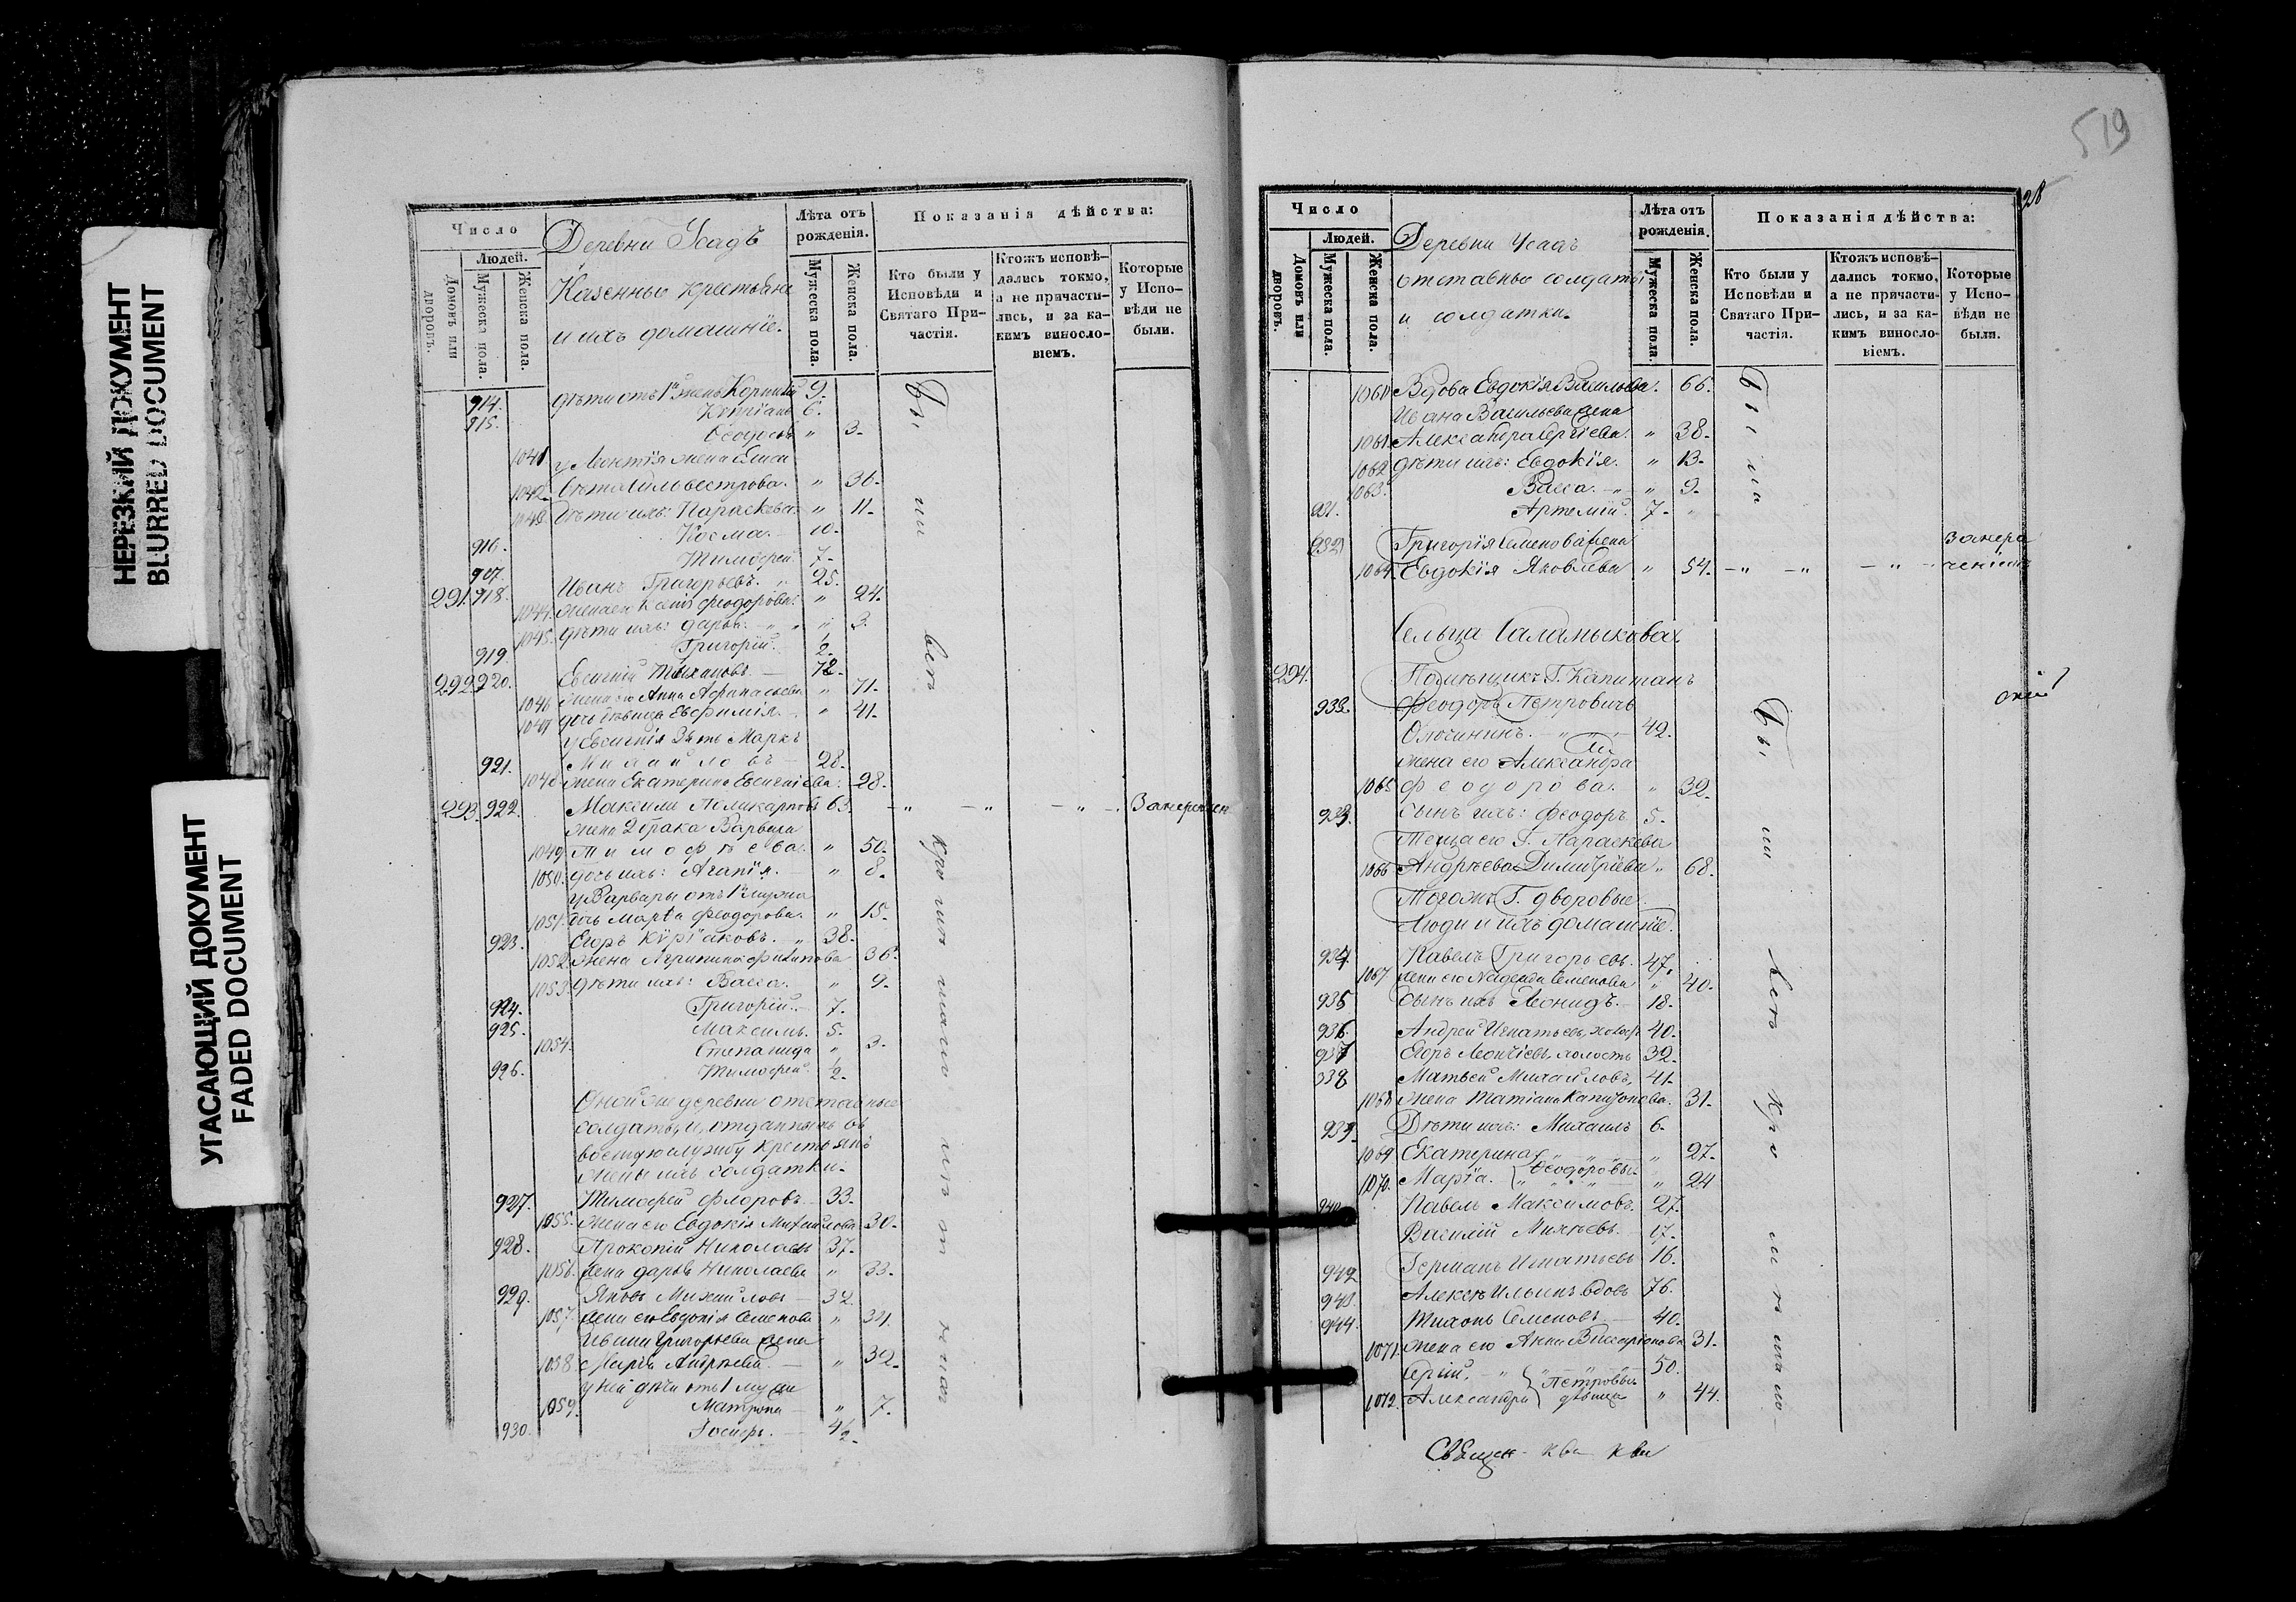 НЕРЕЗКИЙ ДОКУМЕНТ
BLURRED DOCUMENT
УГАСАЮЩИЙ ДОКУМЕНТ
FADED DOCUMENT
Число
Людей.
Домовъ или дворовъ.
Мужеска пола.
Женска пола.
Деревни Усадъ
Казенные крестьяне
и ихъ домашніе.
Лѣта отъ рожденія.
Мужеска пола.
Женска пола.
Показанія дѣйства:
Кто были у Исповѣди и Святаго Причастія.
Ктожъ исповѣдались токмо, а не причастились, и за какимъ винословіемъ.
Которые у Исповѣди не были.
914. дѣти отъ 1й жены Корнилій 9.
915. Кипріанъ 6.
1041 Ѳеодосья " 3.
у Леонтія жена Елиса
1042. вета Силвестрова. " 36.
1043. Дѣти ихъ: Параскева. " 11.
916. Косма. 10.
917. Тимоѳей 7.
291. 918. Иванъ Григорьевъ. " 25.
1044. жена его Ксенія Феодорова. " 24.
1045. дѣти ихъ: Дарья. " 3.
919. Григорій. 1/2.
292. 920. Евсигній Тихановъ. 72.
1046 жена его Анна Афанасьева " 71.
1047 дочь дѣвица Евфимія. " 41.
у Евсигнія Зять Маркъ
921. Михайловъ 28.
1048 жена Екатерина Евсигніева. 28.
293. 922. Максимъ Поликарповъ 63. Западжен
жена 2 брака Варвара
1049. Тимофѣева. " 50.
1050. дочь ихъ: Агапія. " 8.
у Варвары отъ 1 мужа
1051. дочь Марѳа Феодорова. " 15.
923. Егоръ Куріаковъ. " 38.
1052. Жена Агрипина Филипова 36.
1053. дѣти ихъ: Васса. " 9.
924. Григорій. 7.
925. Максимъ. 5.
1054. Степанида " 3.
926. Тимоѳей. 1/2.
Оной же деревни отставные
солдаты, и отданныхъ въ
военную службу крестьянъ
жены ихъ солдатки.
927. Тимоѳей Флоровъ. 33.
1055. жена его Евдокія Михайлова 30.
928. Прокопій Николаевъ 37.
1056. жена Дарья Николаева " 33.
929. Яковъ Михайловъ 32
1057. жена его Евдокія Семенова " 31.
Ивана Григорьева жена
1058 Марѳа Андрѣева. " 32.
у ней дѣти отъ 1 мужа
1059. Матрона " 7.
930. Іосифъ. 4 1/2.
Бы ли всѣ кро
519
28
Число
Людей.
Домовъ или дворовъ.
Мужеска пола.
Женска пола.
Деревни Усадъ
отставные солдаты
и солдатки.
Лѣта отъ рожденія.
Мужеска пола.
Женска пола.
Показанія дѣйства:
Кто были у Исповѣди и Святаго Причастія.
Ктожъ исповѣдались токмо, а не причастились, и за какимъ винословіемъ.
Которые у Исповѣди не были.
1060 Вдова Евдокія Васильева. 66.
Ивана Васильева жена
1061. Александра Сергіева. " 38.
1062 дѣти ихъ: Евдокія. " 13.
1063. Васса. " 9.
931. Артемій. 7.
932 Григорія Семенова жена
1064. Евдокія Яковлева " 54.
Сельца Саламыкова
294. Помѣщикъ Г. Капитанъ
933. Феодоръ Петровичъ
42.
жена его Александра
1065 Феодорова. " 32.
933. Сынъ ихъ: Феодоръ 5.
Теща его Г. Параскева
1066 Андрѣева Димитріева " 68.
Тогожъ Г. дворовые
люди и ихъ домашніе.
934 Павелъ Григорьевъ. 47.
1067 жена его Надежда Семенова " 40.
935 Сынъ ихъ Леонидъ. 18.
936. Андрей Игнатьевъ, холост 40.
937 Егоръ Леонтіевъ, холостъ 32.
938 Матвей Михайловъ, 41.
1068 жена Татіана Капитонова. 31.
939. Дѣти ихъ: Михаилъ 6.
1069 Екатерина " 27.
1070. Марѳа. Ѳеодоровы. " 24
940 Павелъ Максимовъ. 27.
Василій 17.
942 Германъ Игнатьевъ 16.
943. Алексѣй Ильинъ вдовъ 76.
944. Тихонъ Семеновъ 40.
1071. жена его Анна Виссаріонова 31.
Сергій. Петровы 50.
1072. Александра дѣвица " 44.
Бы ли всѣ кро